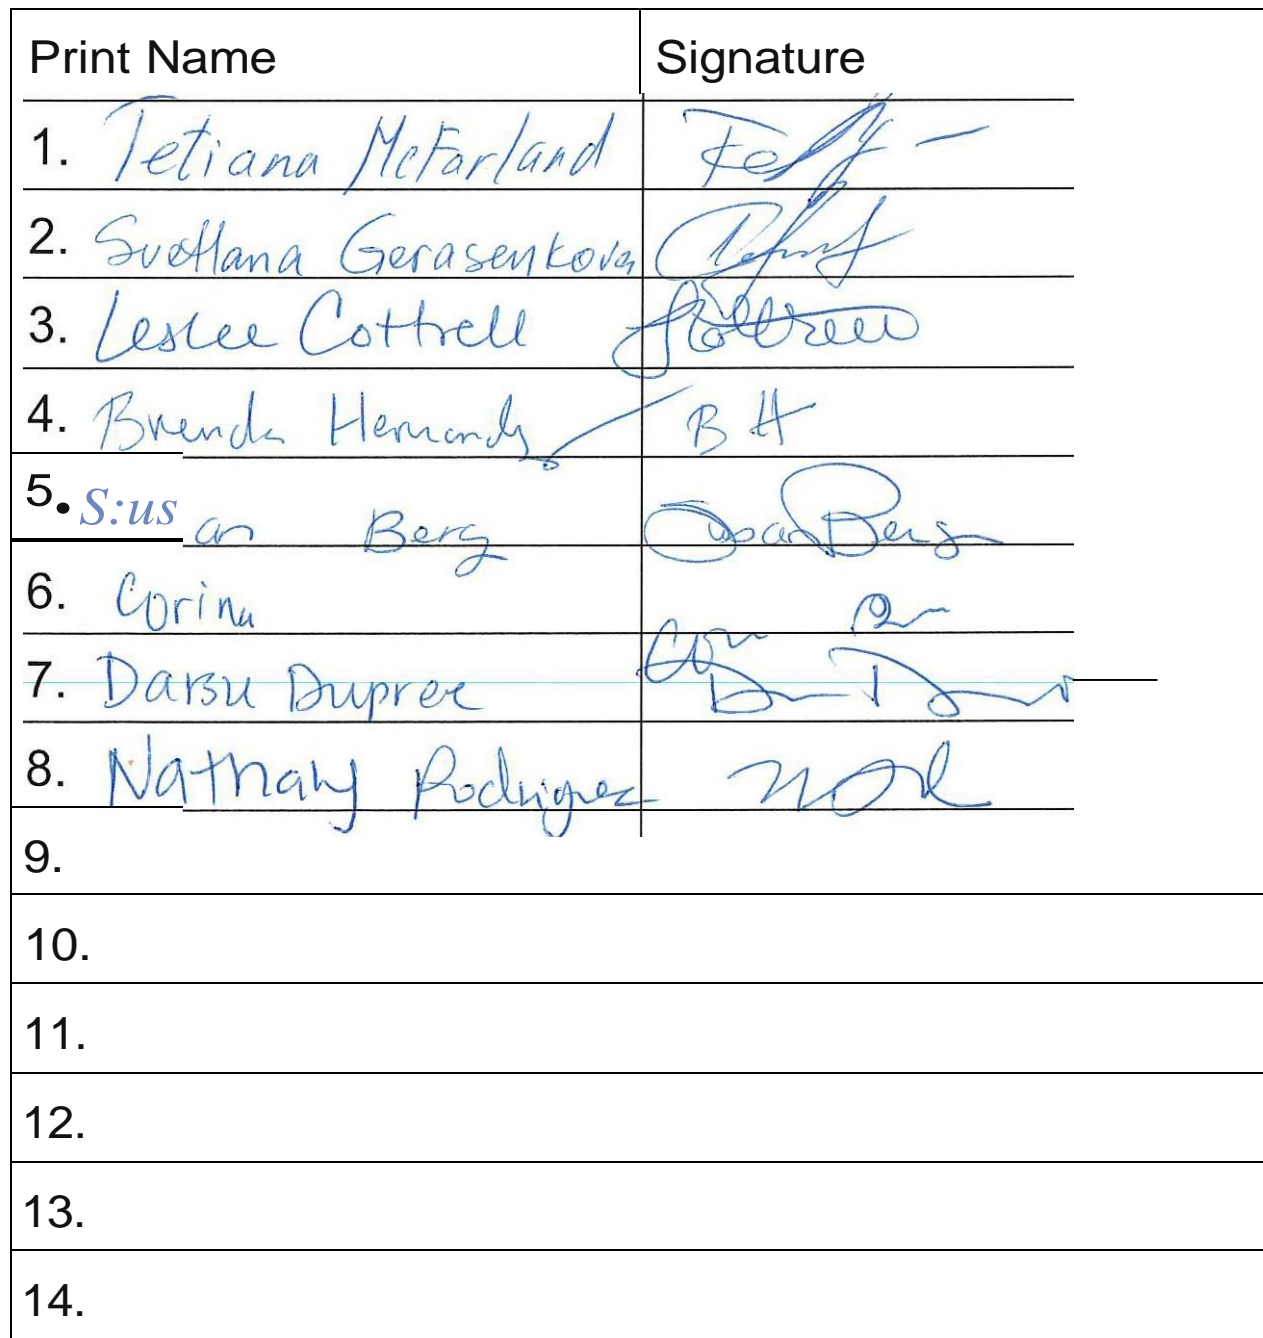 Print Name Signature
1. Tetiana McFarland
2. Svetlana Gerasenkova
3. Leslee Cottrell LCottrell
4. Brenda B H
5. S:us an Berg Susan Berg
6. Corina
7. Dupree
8. Nathaly Rodriguez
9.
10.
11.
12.
13.
14.